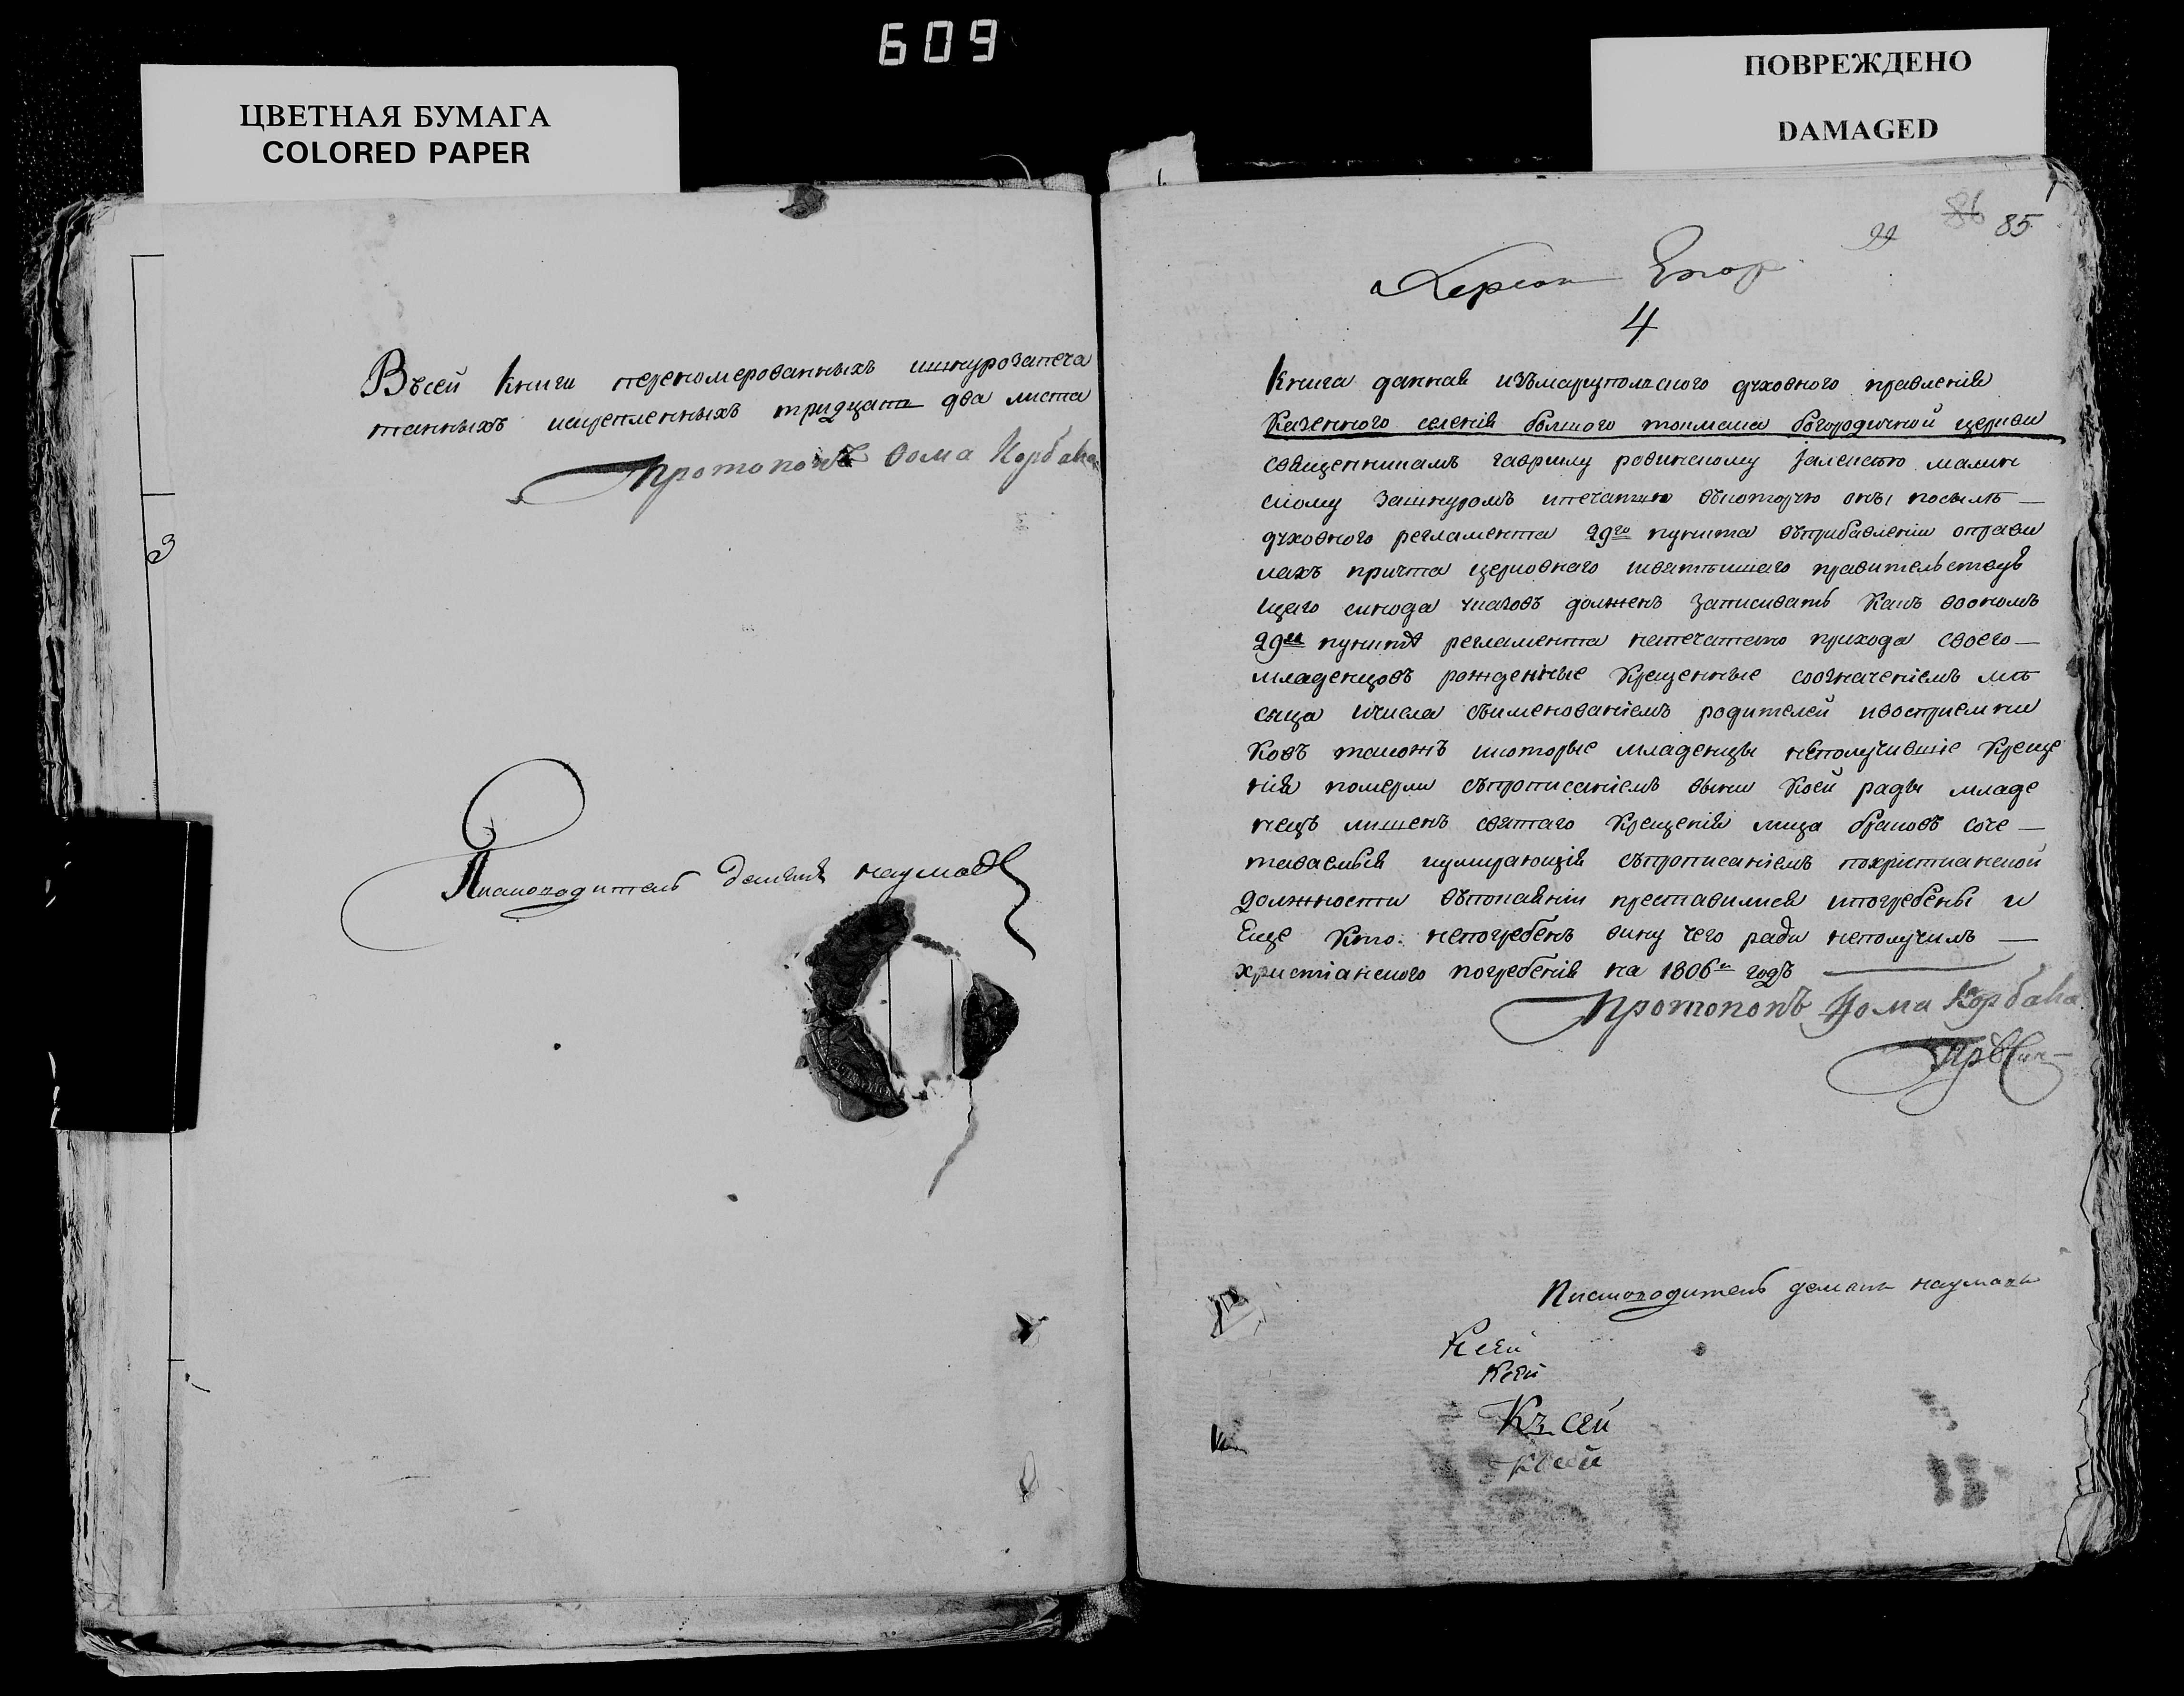 609
ЦВЕТНАЯ БУМАГА
COLORED PAPER
ПОВРЕЖДЕНО
DAMAGED
Въсей книги перекомерованныхъ ишнурозапеча
танныхъ искрепленныхъ тридцать два листа
Протопопъ Ѳома Корбака
Писмоводитель Демянъ наумовъ
3
86 85
Херсон
4
Книга данная изъмариупольского духовного правленія
Казенного селенія болшого токмака богородичной церкви
священникамъ гавриилу ровинскому
скому зашнуромъ ипечатью въкоторую онъ посилѣ
духовного регламента 29го пункта въприбавленіи оправи
лахъ причта церковнаго исвятѣишаго правительствую
щаго синода указовъ долженъ записивать какъ воономъ
29мъ пунктѣ регламента напечатано прихода своего
младенцовъ рожденные крещенные созначеніемъ мѣ
сяца ичисла съименованіемъ родителей ивосприемни
ковъ такожъ икоторые младенцы неполучившіе креще
нія померли съпрописаніемъ вини коей ради младе
нецъ лишенъ святаго крещенія лица браковъ соче
таваемыя иумирающія съпрописаніемъ похристианской
должности въпокаяніи преставилися ипогребены и
Еще кто непогребенъ вину чего ради неполучилъ
христіанского погребенія на 1806й годъ
Протопопъ Ѳома Корбака
Писмоводитель демянъ наумовъ
Ксей
Ксей
Къ сей
Ксей